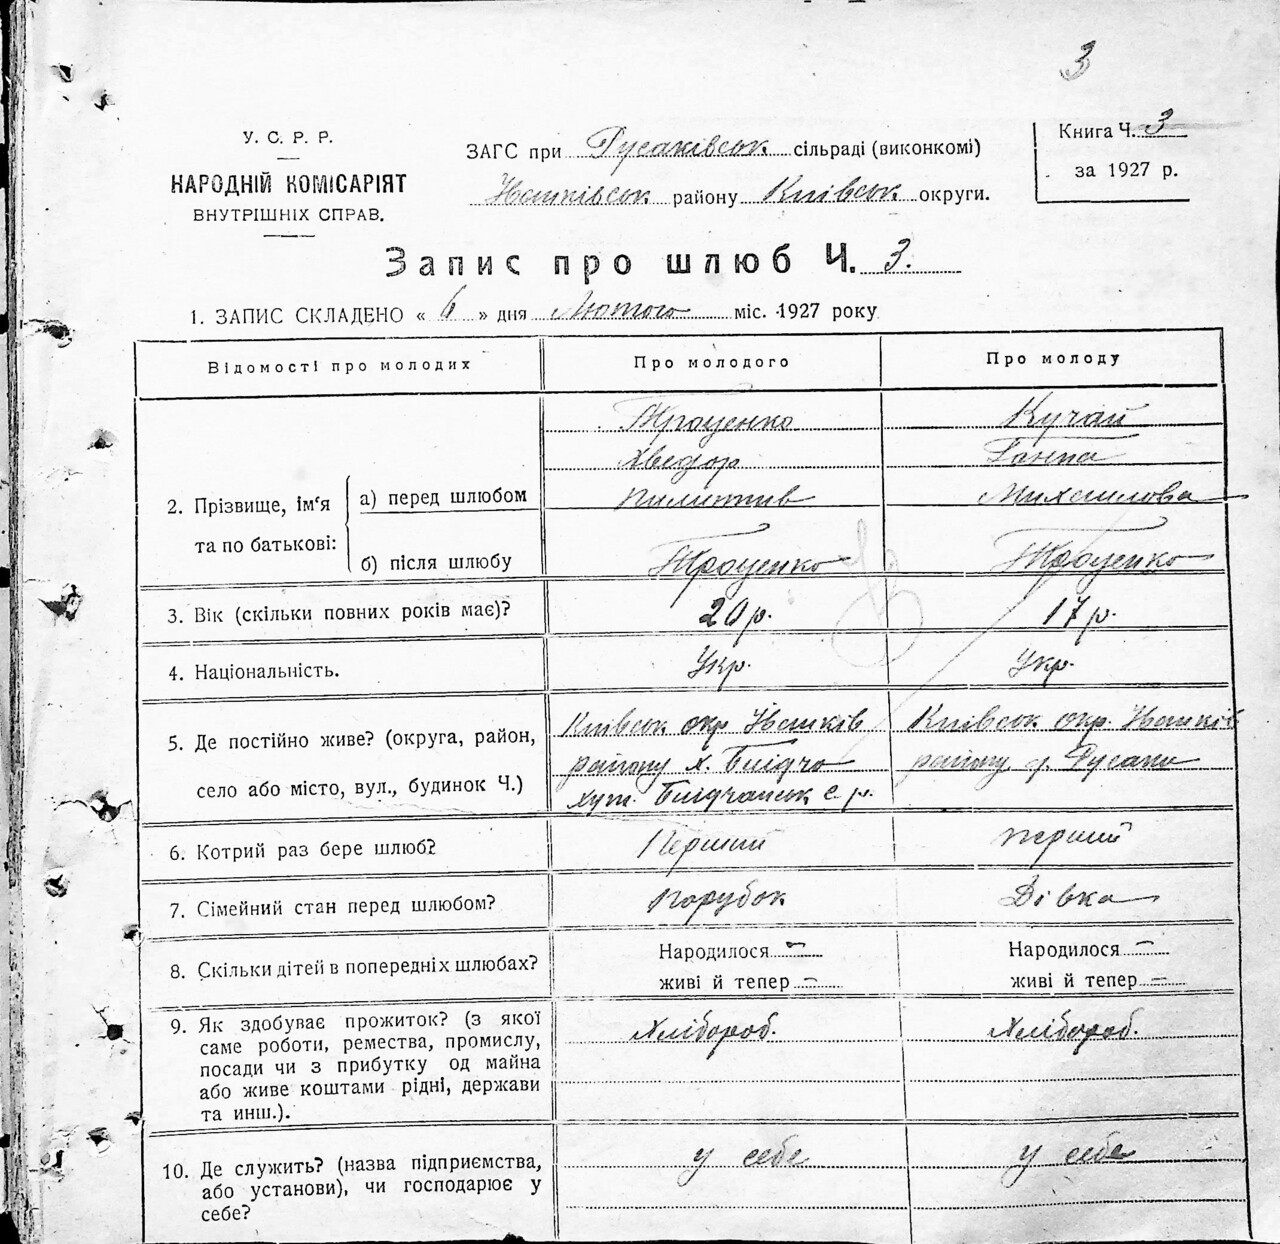 3
У. С. Р. Р.
НАРОДНІЙ КОМІСАРІЯТ
ВНУТРІШНІХ СПРАВ.
ЗАГС при Русаківськ сільраді (виконкомі)
районy Київськ округи.
Книга Ч. 3
за 1927 р.
Запис про шлюб Ч. 3.
1. ЗАПИС СКЛАДЕНО « 6 » дня Лютого міс. 1927 року
Відомості про молодих
Про молодого
Про молоду
2. Прізвище, ім‘я та по батькові:
а) перед шлюбом
Троценко
Хведор
Пилипів
Кучай
Ганна
Михайлова
б) після шлюбу
Троценко
Троценко
3. Вік (скільки повних років має)?
20 р.
17 р.
4. Національність.
Укр.
Укр.
5. Де постійно живе? (округа, район,
село або місто, вул., будинок Ч.)
Київськ окр.
району х.
хут. с. р.
Київськ окр.
району Русаки
6. Котрий раз бере шлюб?
Перший
перший
7. Сімейний стан перед шлюбом?
Парубок
Дівка
8. Скільки дітей в попередніх шлюбах?
Народилося —
живі й тепер —
Народилося —
живі й тепер —
9. Як здобуває прожиток? (з якої
саме роботи, ремества, промислу,
посади чи з прибутку од майна
або живе коштами рідні, держави
та инш.).
Хлібороб.
Хлібороб.
10. Де служить? (назва підприємства,
або установи), чи господарює у
себе?
у себе
у себе